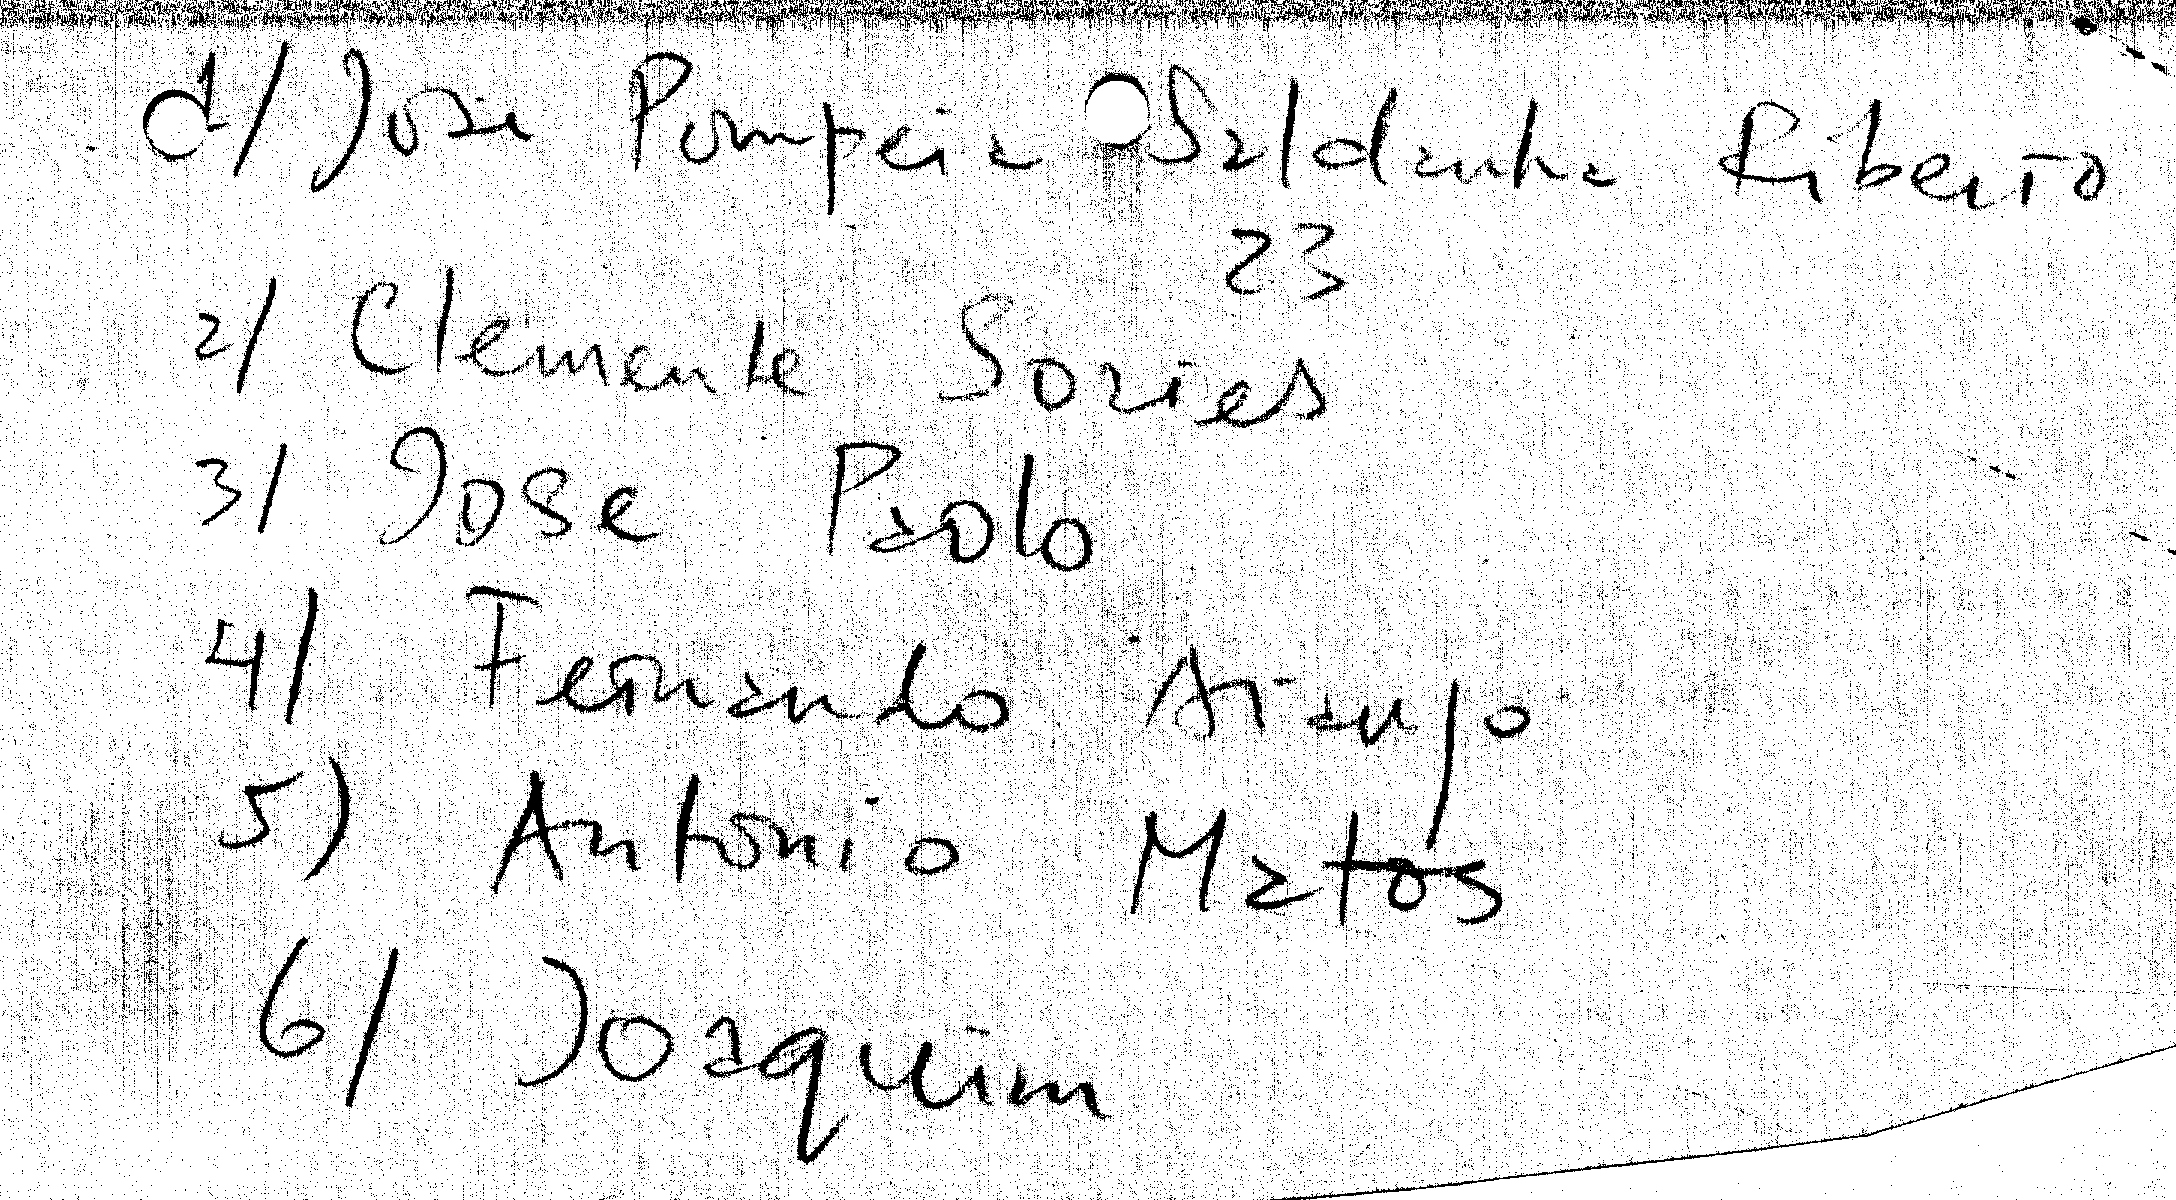 1/ Jose Pompeia Saldanha Ribeiro
23
2/ Clemente Sories
3/ Jose Paolo
4/ Fernando Araujo
5) Antonio Matos
6/ Joaquim